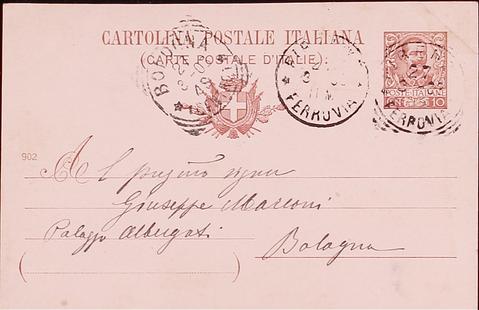 CARTOLINA POSTALE ITALIANA
(CARTE POSTALE D'ITALIE)
BOLOGNA
FERROVIA
27
FERROVIA
POSTE ITALIANE
10
902
Al
signor
Giuseppe Marconi
Palazzo Albergati
Bologna